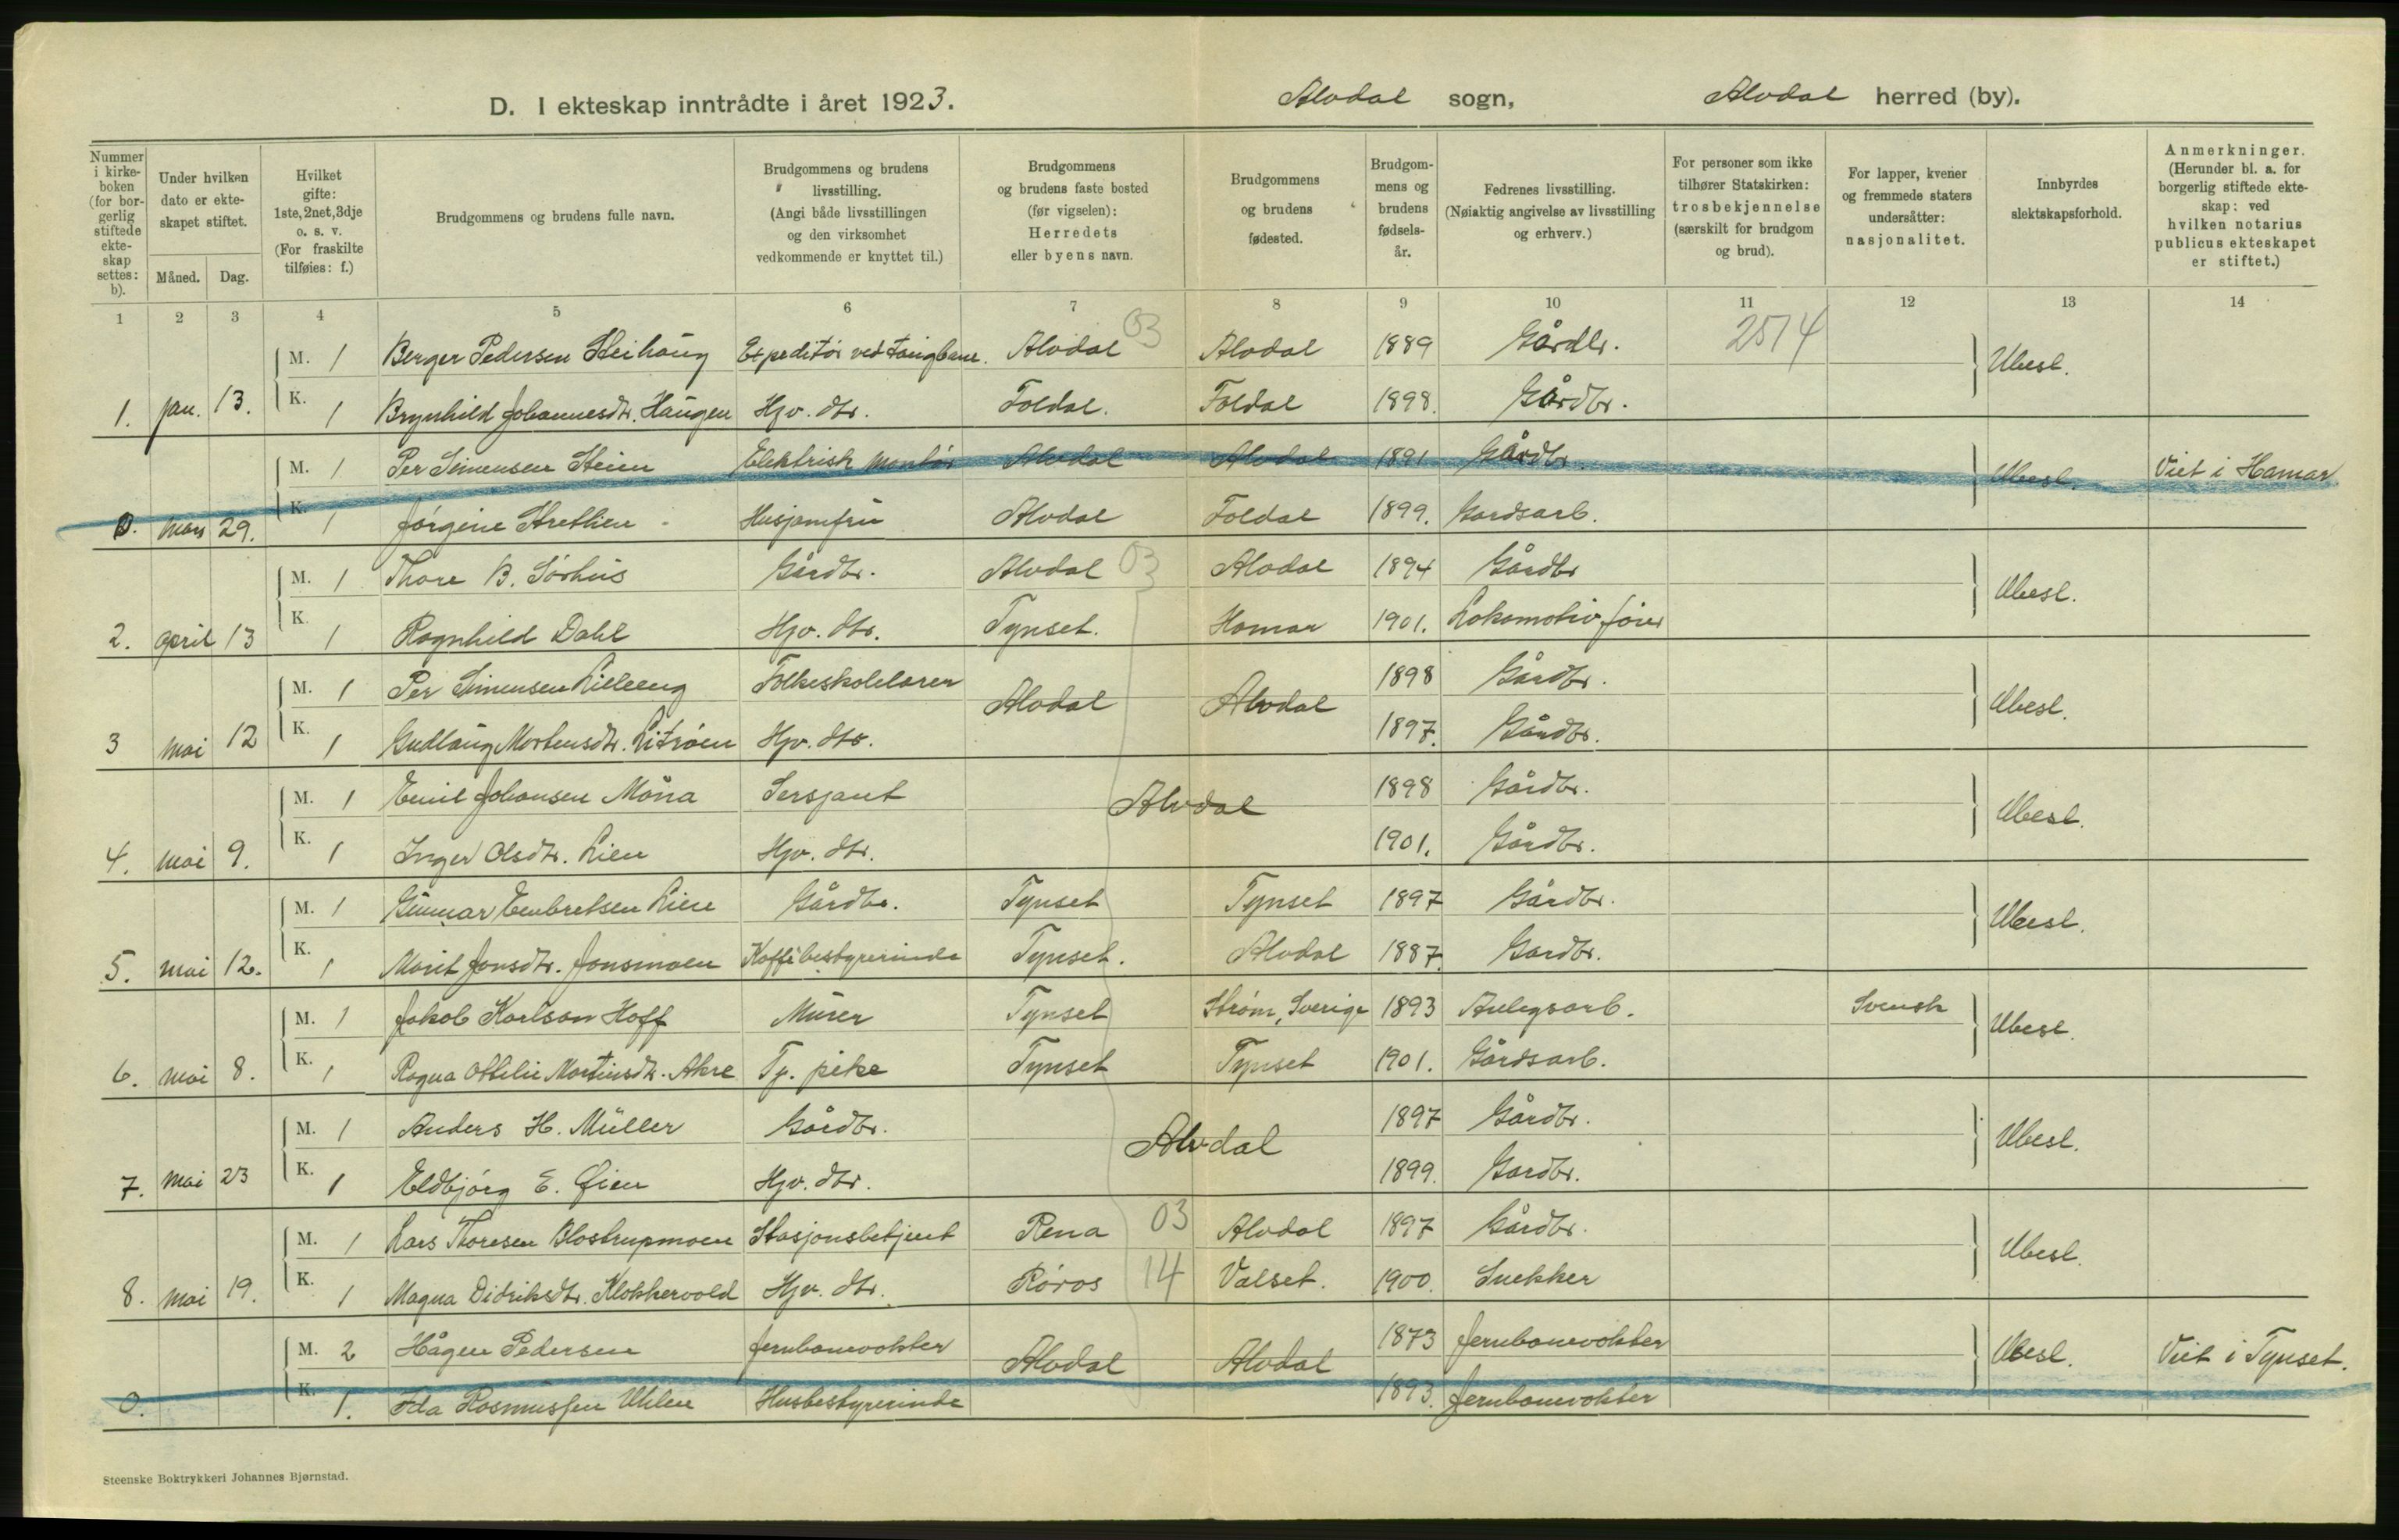 D. I ekteskap inntrådte i året 1923. Alvdal sogn, Alvdal herred (by).
Nummer i kirkeboken (for borgerlig stiftede ekteskap settes: b).
Under hvilken dato er ekteskapet stiftet.
Måned. Dag.
Hvilket gifte: 1ste, 2net, 3dje o. s. v. (For fraskilte tilføies: f.)
Brudgommens og brudens fulle navn.
Brudgommens og brudens livsstilling. (Angi både livsstillingen og den virksomhet vedkommende er knyttet til.)
Brudgommens og brudens faste bosted (før vigselen): Herredets eller byens navn.
Brudgommens og brudens fødested.
Brudgommens og brudens fødselsår.
Fedrenes livsstilling. (Nøiaktig angivelse av livsstilling og erhverv.)
For personer som ikke tilhører Statskirken: trosbekjennelse (særskilt for brudgom og brud).
For lapper, kvener og fremmede staters undersåtter: nasjonalitet.
Innbyrdes slektskapsforhold.
Anmerkninger. (Herunder bl. a. for borgerlig stiftede ekteskap: ved hvilken notarius publicus ekteskapet er stiftet.)
1 2 3 4 5 6 7 8 9 10 11 12 13 14
M. 1 Berger Pedersen Steihaug Expeditør ved Alvdal 03 Alvdal 1889 Gårdbr. 2514 Ubesl.
1. jan. 13. K. 1 Brynhild Johannesdtr. Haugen Hjv. dtr. Foldal. Foldal 1898. Gårdbr.
M. 1 Per Simensen Steien Elektrisk montør Alvdal Alvdal 1891 Gårdbr. Ubesl. Viet i Hamar
0. mars 29. K. 1 Jørgine Strethien Husjomfru Alvdal Foldal 1899. Gardsarb.
M. 1 Thore B. Sørhus Gårdbr. Alvdal 03 Alvdal 1894 Gårdbr Ubesl.
2. april 13 K. 1 Ragnhild Dahl Hjv. dtr. Tynset. Hamar 1901. Lokomotivfører
M. 1 Per Simensen Lilleeng Folkeskolelærer Alvdal Alvdal 1898 Gårdbr. Ubesl.
3 mai 12 K. 1 Gudlaug Mortensdtr. Litrøen Hjv. dtr. 1897. Gårdbr.
M. 1 Emil Johansen Måna Sersjant Alvdal 1898 Gårdbr. Ubesl.
4. mai 9. K. 1 Inger Olsdtr. Lien Hjv. dtr. 1901. Gårdbr.
M. 1 Gunnar Embretsen Lien Gårdbr. Tynset Tynset 1897 Gårdbr. Ubesl.
5. mai 12. K. 1 Marit Jonsdtr. Jonsmoen Kaffibestyrerinde Tynset. Alvdal 1887. Gardbr.
M. 1 Jakob Karlson Hoff Murer Tynset Strøm, Sverige 1893 Anlegsarb. Svensk Ubesl.
6. mai 8. K. 1 Ragna Ottilie Martinsdtr. Akre Tj. pike Tynset Tynset 1901. Gårdsarb.
M. 1 Anders H. Müller Gårdbr. Alvdal 1897 Gårdbr. Ubesl.
7. mai 23 K. 1 Eldbjørg E. Øien Hjv. dtr. 1899. Gardbr.
M. 1 Lars Thoresen Blostrupmoen Stasjonsbetjent Rena 03 Alvdal 1897 Gårdbr. Ubesl.
8. mai 19. K. 1 Magna Didriksdtr. Klokkervold Hjv. dtr. Røros 14 Valset. 1900. Snekker
M. 2 Hågen Pedersen Jernbanevokter Alvdal Alvdal 1873 Jernbanevokter Ubesl. Viet i Tynset.
0. K. 1. Ida Rasmussen Uhlen Husbestyrerinde 1893. Jernbanevokter
Steenske Boktrykkeri Johannes Bjørnstad.